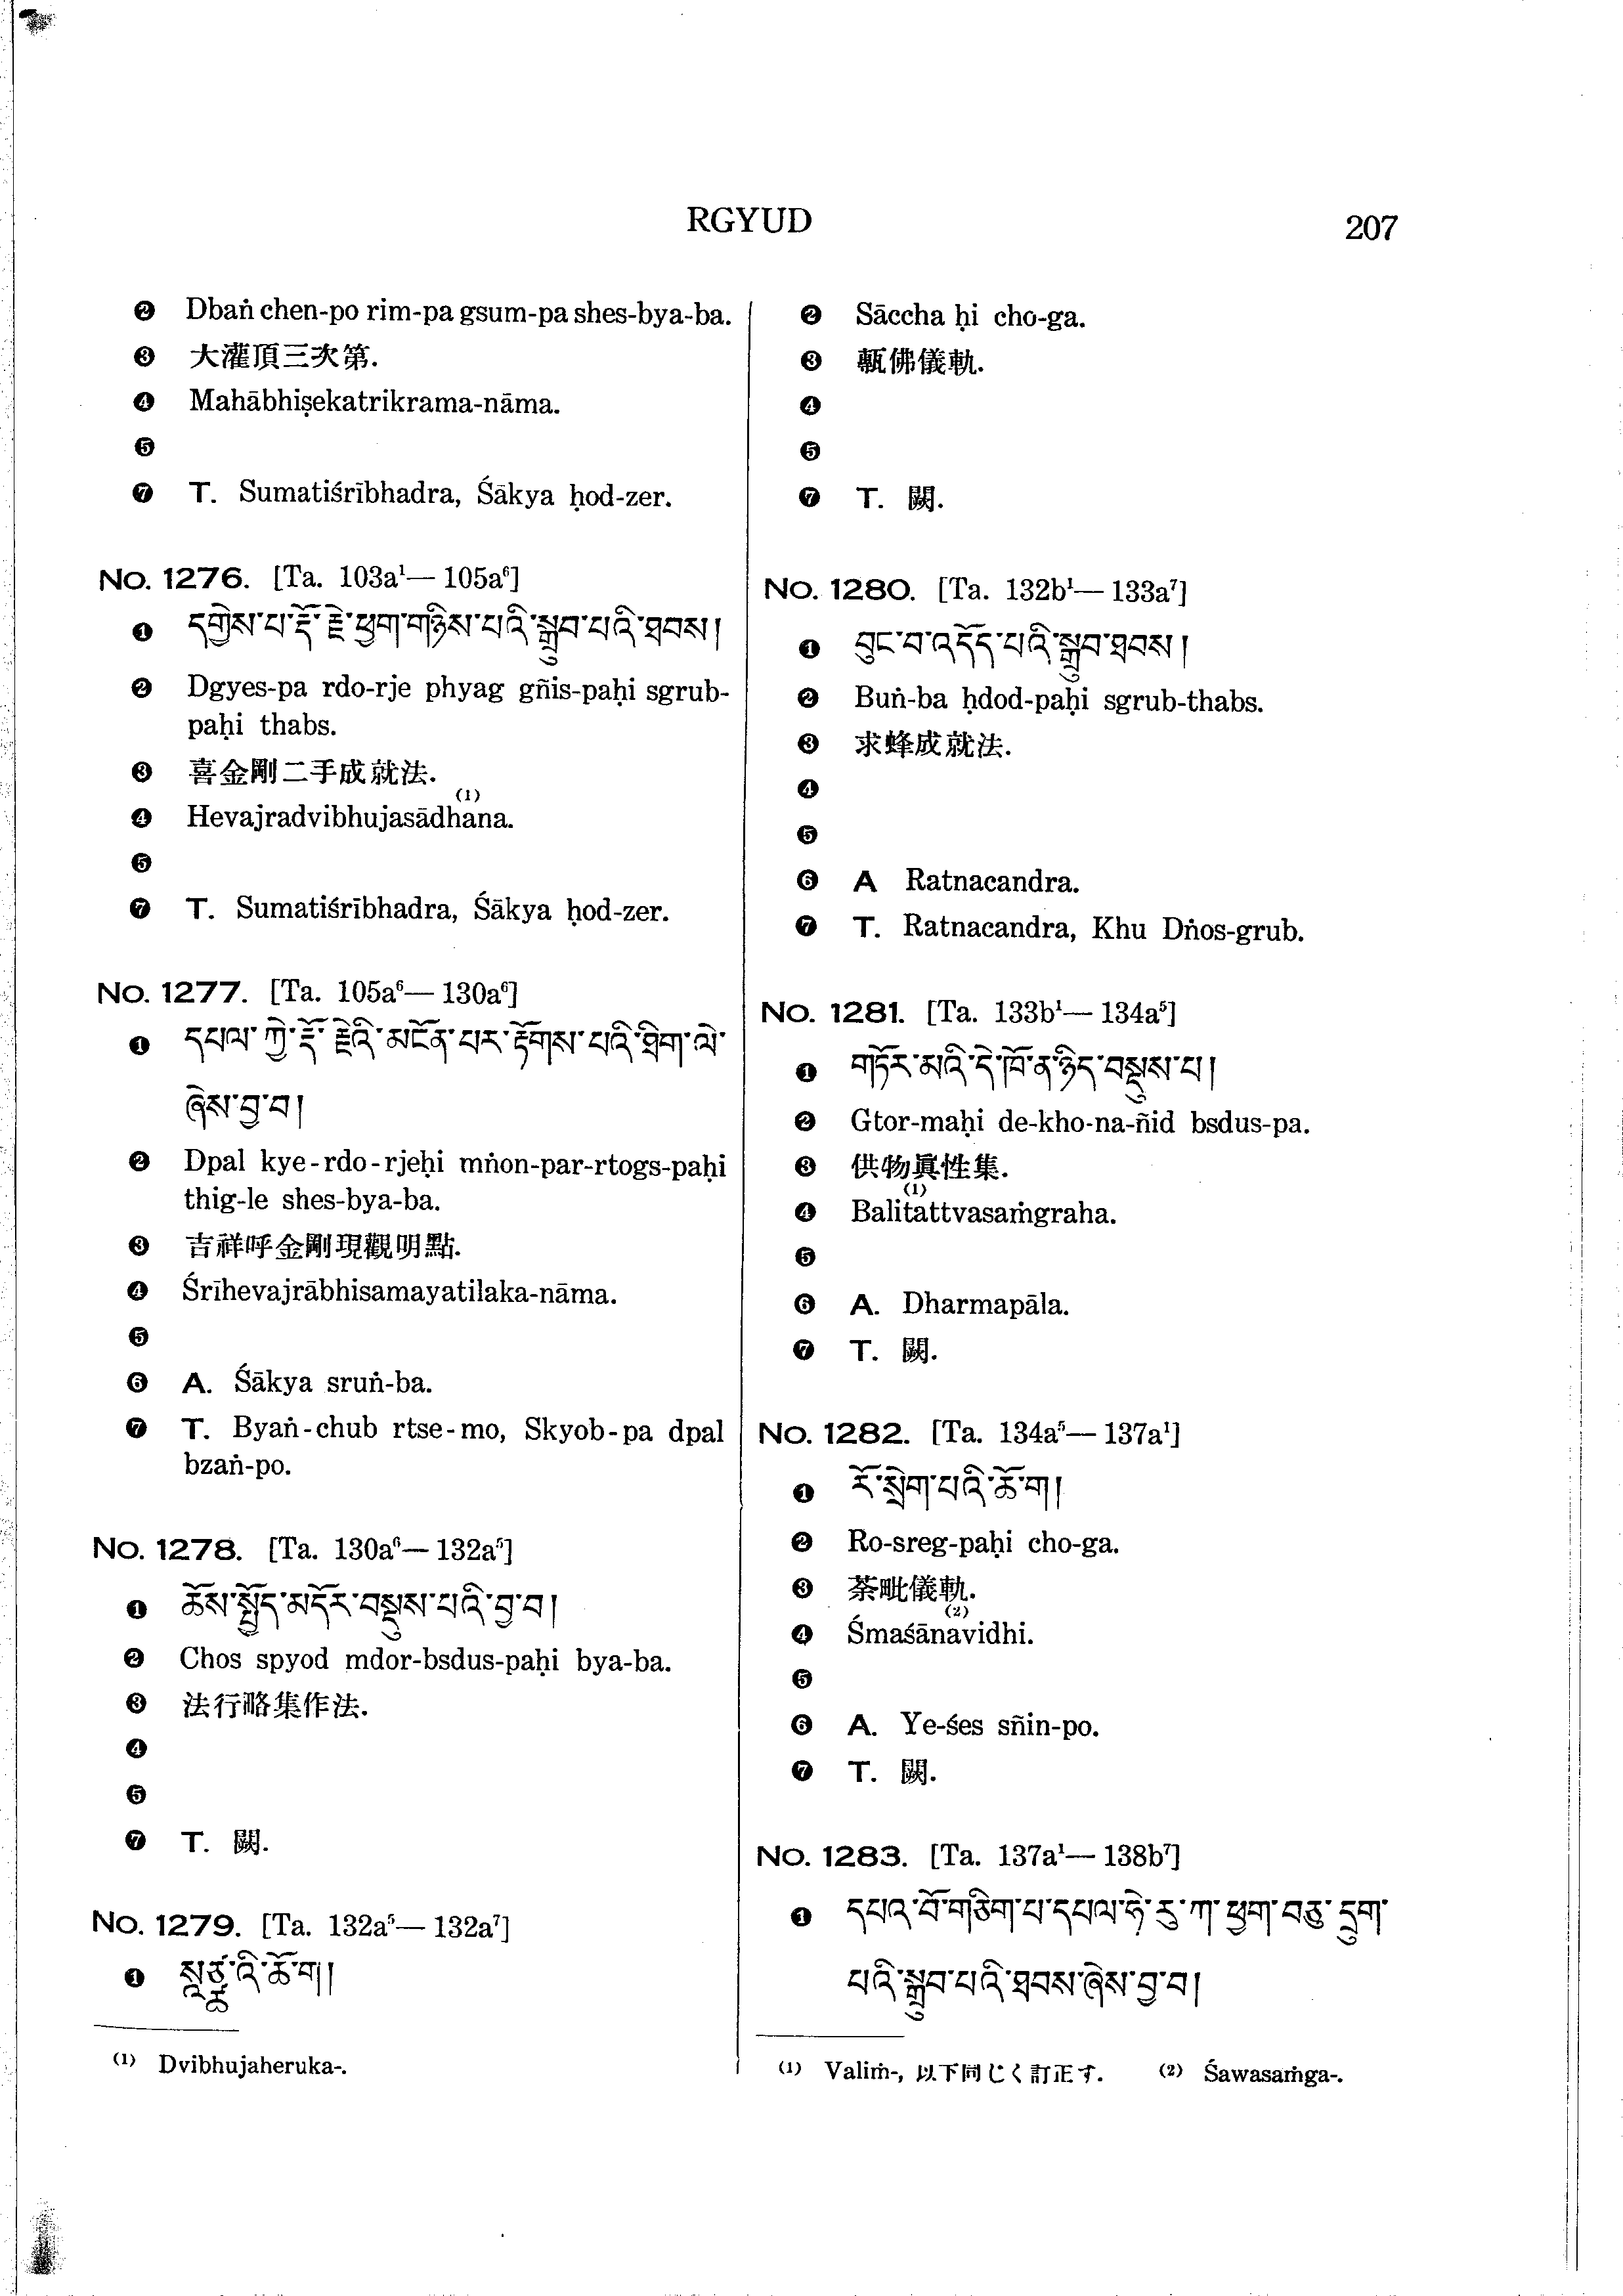 RGYUD
207
❷ Dbaṅ chen-po rim-pa gsum-pa shes-bya-ba.
❸ 大灌頂三次第.
❹ Mahābhiṣekatrikrama-nāma.
❺
❼ T. Sumatiśrībhadra, Śākya ḥod-zer.
No. 1276. [Ta. 103a¹—105a⁶]
❶ དགྱེས་པ་རྡོ་རྗེ་ཕྱག་གཉིས་པའི་སྒྲུབ་པའི་ཐབས།
❷ Dgyes-pa rdo-rje phyag gñis-paḥi sgrub-
paḥi thabs.
❸ 喜金剛二手成就法.
(1)
❹ Hevajradvibhujasādhana.
❺
❼ T. Sumatiśrībhadra, Śākya ḥod-zer.
No. 1277. [Ta. 105a⁶—130a⁶]
❶ དཔལ་ ཀྱེ་རྡོ་ རྗེའི་མངོན་པར་རྟོགས་པའི་ཐིག་ལེ་
ཞེས་བྱ་བ།
❷ Dpal kye-rdo-rjeḥi mṅon-par-rtogs-paḥi
thig-le shes-bya-ba.
❸ 吉祥呼金剛現觀明點.
❹ Śrīhevajrābhisamayatilaka-nāma.
❺
❻ A. Śākya sruṅ-ba.
❼ T. Byaṅ-chub rtse-mo, Skyob-pa dpal
bzaṅ-po.
No. 1278. [Ta. 130a⁶—132a⁵]
❶ ཆོས་སྤྱོད་མདོར་བསྡུས་པའི་བྱ་བ།
❷ Chos spyod mdor-bsdus-paḥi bya-ba.
❸ 法行略集作法.
❹
❺
❼ T. 闕.
No. 1279. [Ta. 132a⁵—132a⁷]
❶ སཱཙྪ་འི་ཆོ་ག།
(1) Dvibhujaheruka-.
❷ Sāccha ḥi cho-ga.
❸ 甎佛儀軌.
❹
❺
❼ T. 闕.
No. 1280. [Ta. 132b¹—133a⁷]
❶ བུང་བ་འདོད་པའི་སྒྲུབ་ཐབས།
❷ Buṅ-ba ḥdod-paḥi sgrub-thabs.
❸ 求蜂成就法.
❹
❺
❻ A Ratnacandra.
❼ T. Ratnacandra, Khu Dṅos-grub.
No. 1281. [Ta. 133b¹—134a⁵]
❶ གཏོར་མའི་དེ་ཁོ་ན་ཉིད་བསྡུས་པ།
❷ Gtor-maḥi de-kho-na-ñid bsdus-pa.
❸ 供物眞性集.
(1)
❹ Balitattvasaṁgraha.
❺
❻ A. Dharmapāla.
❼ T. 闕.
No. 1282. [Ta. 134a⁵—137a¹]
❶ རོ་སྲེག་པའི་ཆོ་ག།
❷ Ro-sreg-paḥi cho-ga.
❸ 荼毗儀軌.
(2)
❹ Śmaśānavidhi.
❺
❻ A. Ye-śes sñin-po.
❼ T. 闕.
No. 1283. [Ta. 137a¹—138b⁷]
❶ དཔའ་བོ་གཅིག་པ་དཔལ་ཧེ་རུ་ཀ་ཕྱག་བཅུ་དྲུག་
པའི་སྒྲུབ་པའི་ཐབས་ཞེས་བྱ་བ།
(1) Valiṁ-, 以下同じく訂正す. (2) Śawasaṁga-.